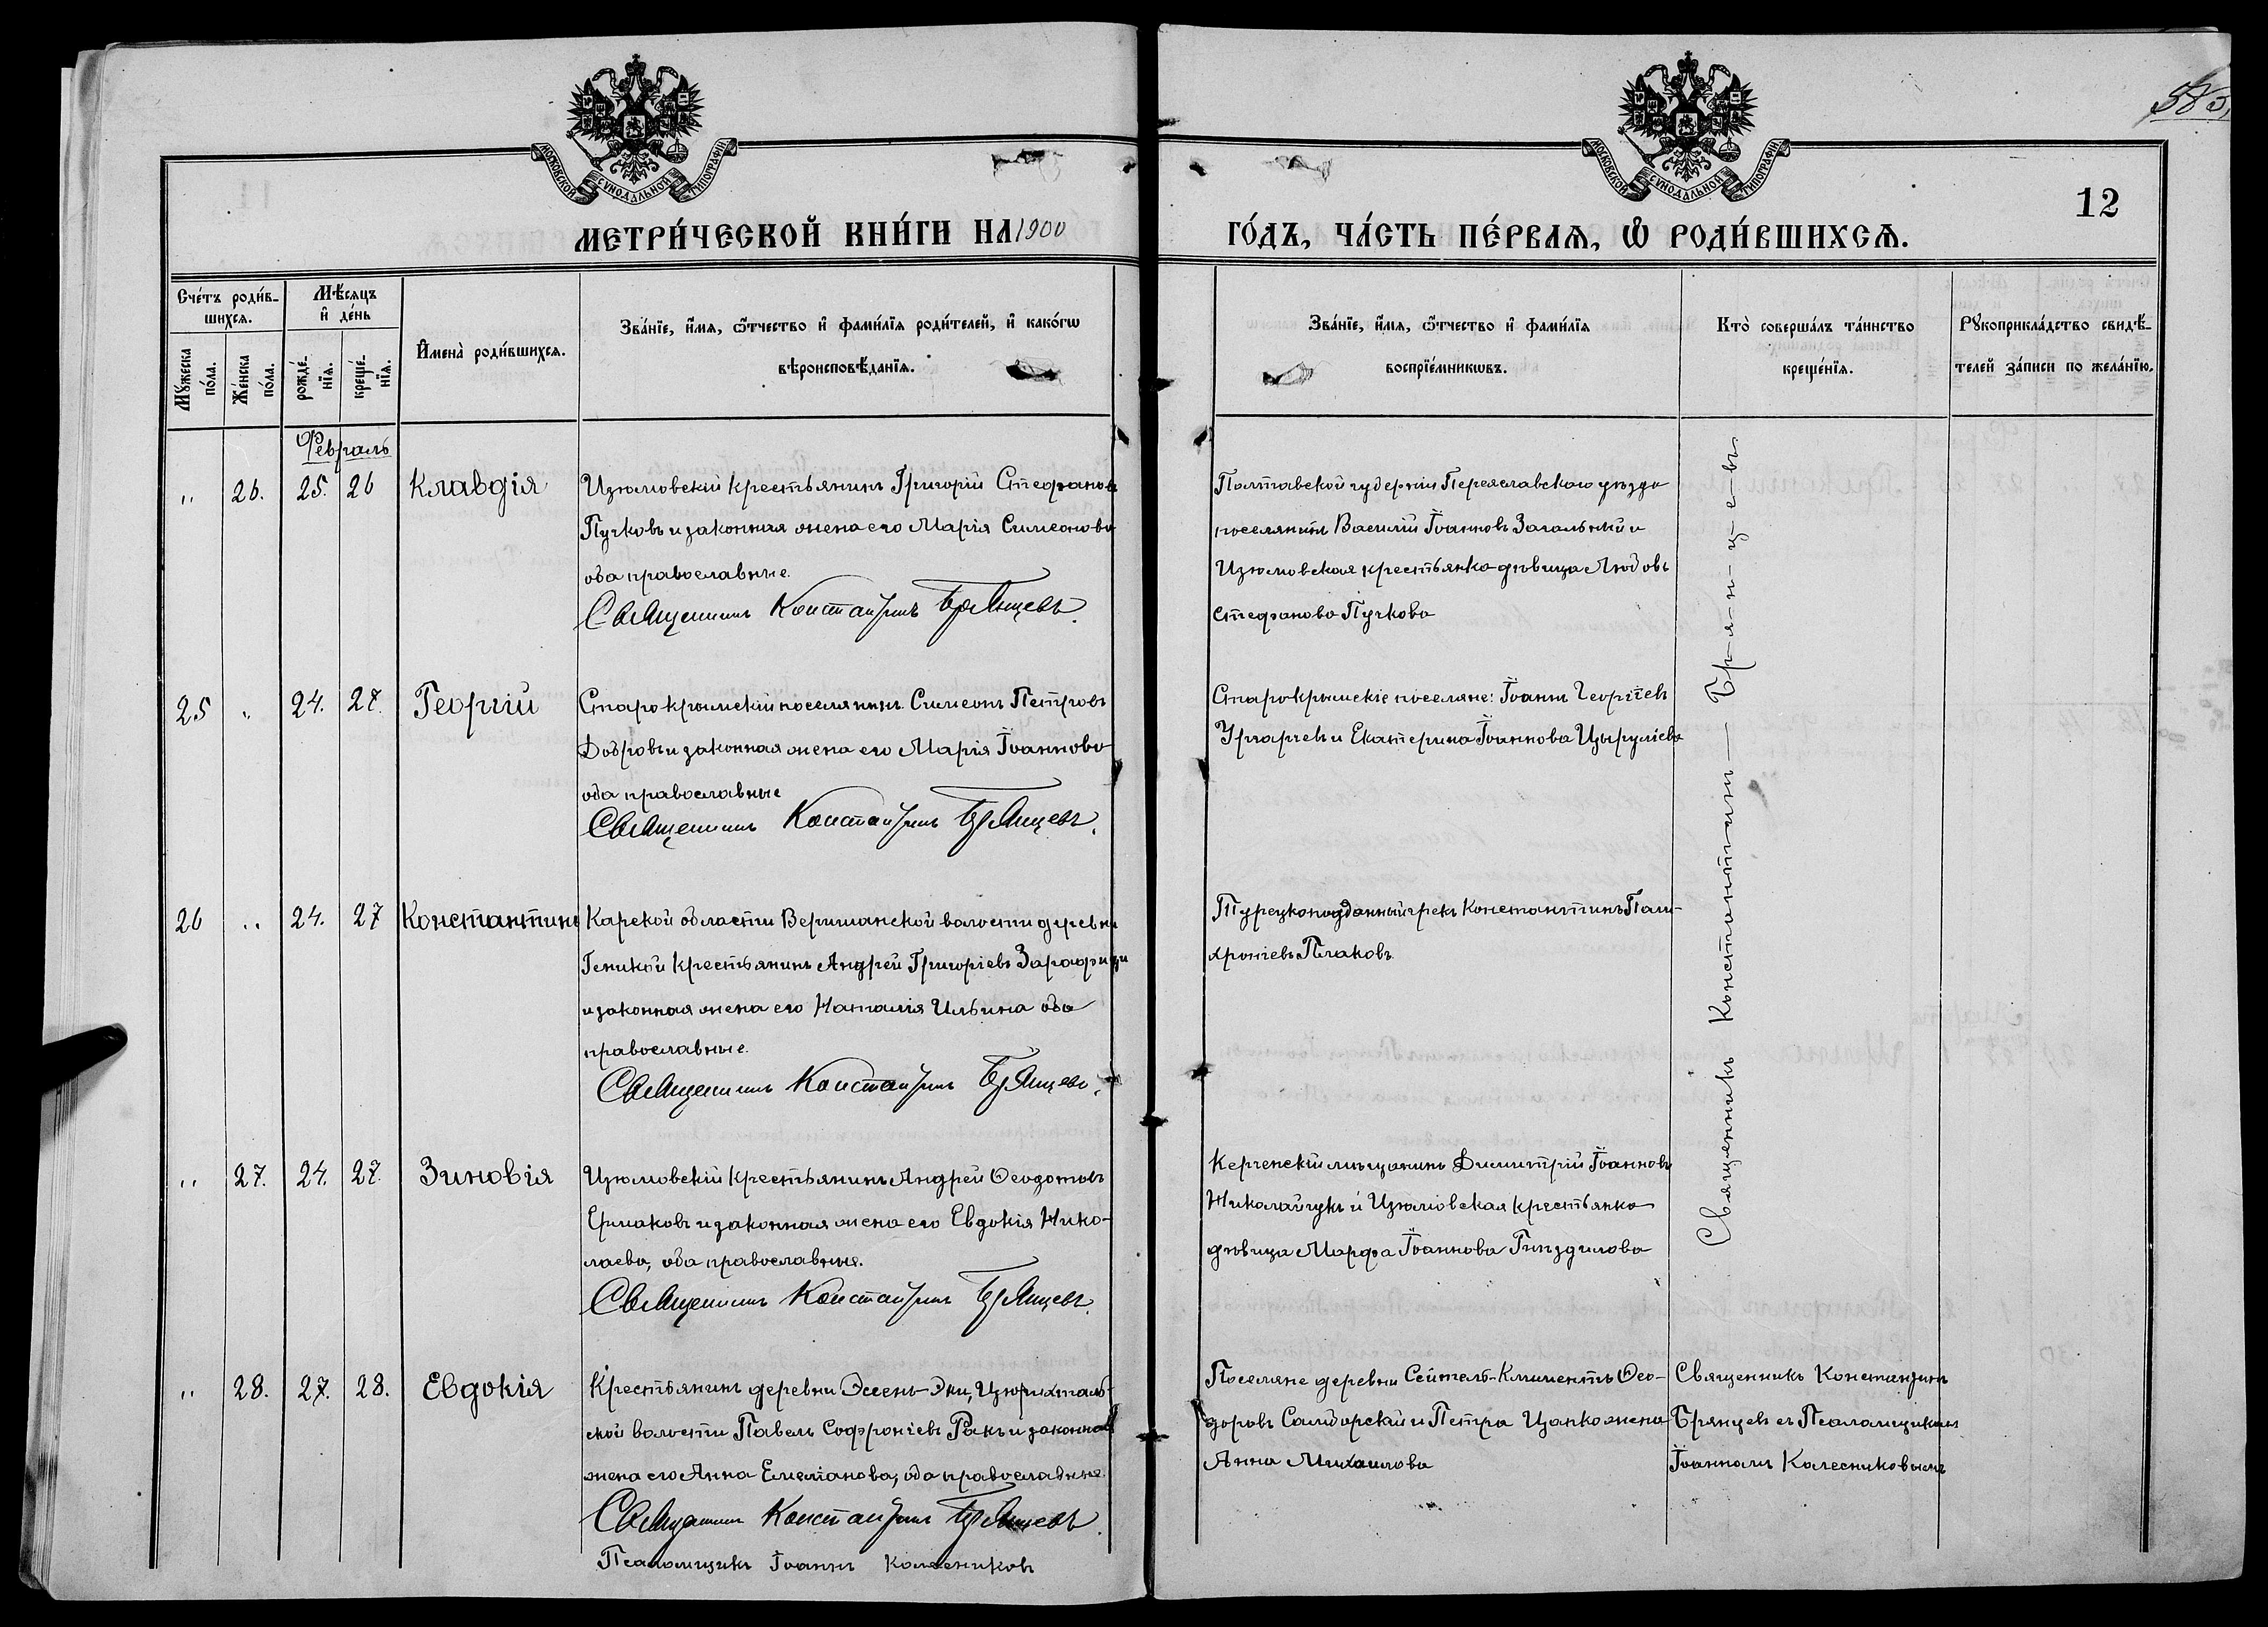 583
МОСКОВСКОЙ СѴНОДАЛЬНОЙ ТИПОГРАФІИ
МОСКОВСКОЙ СѴНОДАЛЬНОЙ ТИПОГРАФІИ
12
МЕТРИ́ЧЕСКОЙ КНИ́ГИ НА 1900 ГО́ДЪ, ЧА́СТЬ ПЕ́РВАѦ, Ѡ҆ РОДИ́ВШИХСѦ.
Сче́тъ роди́в-
шихсѧ.
Мꙋ́жеска
по́ла.
Же́нска
по́ла.
Мѣ́сѧцъ
и҆ де́нь
рожде́-
нїѧ.
креще́-
нїѧ.
И҆мена̀ роди́вшихсѧ.
Зва́нїе, и҆́мѧ, ѻ҆́тчество и҆ фами́лїѧ роди́телей, и҆ како́гѡ
вѣроисповѣ́данїѧ.
Зва́нїе, и҆́мѧ, ѻ҆́тчество и҆ фами́лїѧ
воспрїе́мникѡвъ.
Кто̀ соверша́лъ та́инство
креще́нїѧ.
Рꙋкоприкла́дство свидѣ́-
телей за́писи по жела́нїю.
Февраль
" 26. 25. 26 Клавдія
Изюмовскій крестьянинъ Григорій Стефановъ
Пучковъ и законная жена его Марія Симеонова
оба православные.
Священникъ Константинъ Брянцевъ.
Полтавской губерніи Переяславскаго уѣзда
поселянинъ Василій Іоанновъ Загальный и
Изюмовская крестьянка дѣвица Любовь
Стефанова Пучкова
25 " 24. 27. Георгій
Старокрымскій поселянинъ Симеонъ Петровъ
Добровъ и законная жена его Марія Іоаннова
оба православные
Священникъ Константинъ Брянцевъ.
Старокрымскіе поселяне: Іоаннъ Георгіевъ
Урчарчевъ и Екатерина Іоаннова Цыруліева
26 " 24. 27 Константинъ
Карской области Веришанской волости деревни
Геникой крестьянинъ Андрей Григоріевъ
и законная жена его Наталія Ильина оба
православные.
Священникъ Константинъ Брянцевъ.
Турецкоподданный грекъ Константинъ Пали-
хроніевъ Плаковъ
" 27. 24. 27. Зиновія
Изюмовскій крестьянинъ Андрей Ѳеодотовъ
Ермаковъ и законная жена его Евдокія Нико-
лаева, оба православные.
Священникъ Константинъ Брянцевъ.
Керченскій мѣщанинъ Димитрій Іоанновъ
Николайчукъ и Изюмовская крестьянка
дѣвица Марфа Іоаннова Гниздилова
Священникъ Константинъ Брянцевъ
" 28. 27. 28. Евдокія
Крестьянинъ деревни Эссень-Эки, Цюрихталь-
ской волости Павелъ Софроніевъ Ракъ и законная
жена его Анна Емеліанова, оба православные.
Священникъ Константинъ Брянцевъ.
Псаломщикъ Іоаннъ Колесниковъ
Поселяне деревни Сейтелъ-Климентъ Ѳео-
доровъ Самборскій и Петра Цапко жена
Анна Михаилова
Священникъ Константинъ
Брянцевъ съ Псаломщикомъ
Іоанномъ Колесниковымъ